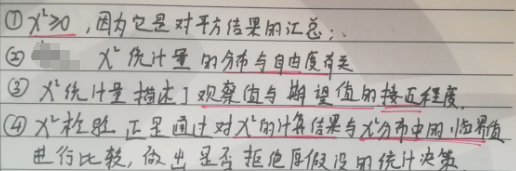 ① x²≥0,因为它是对平方结果的汇总;
② x²统计量的分布与自由度有关
③ x²统计量描述了观察值与期望值的接近程度.
④ x²检验正是通过对x²的计算结果与x²分布中的临界值
进行比较,做出是否拒绝原假设的统计决策